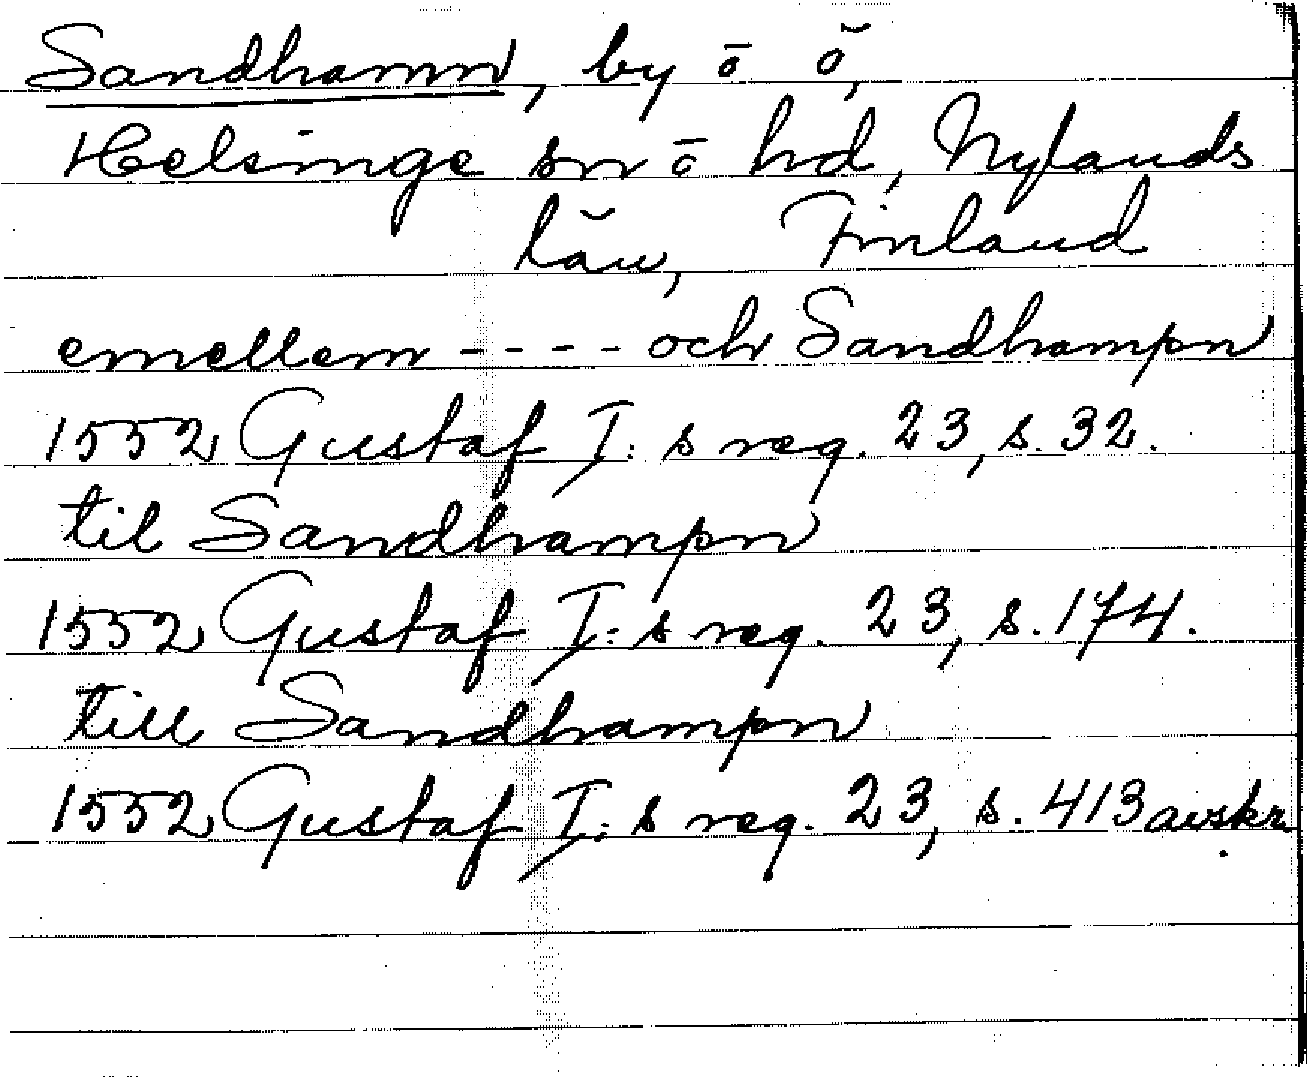 Sandhamn, by o ö,
Helsinge sn o hd, Nylands
län, Finland
emellem ---- och Sandhampn
1552 Gustaf I:s reg. 23, s. 32.
til Sandhampn
1552 Gustaf I:s reg. 23, s. 174.
till Sandhampn
1552 Gustaf I:s reg. 23, s. 413 avskr.